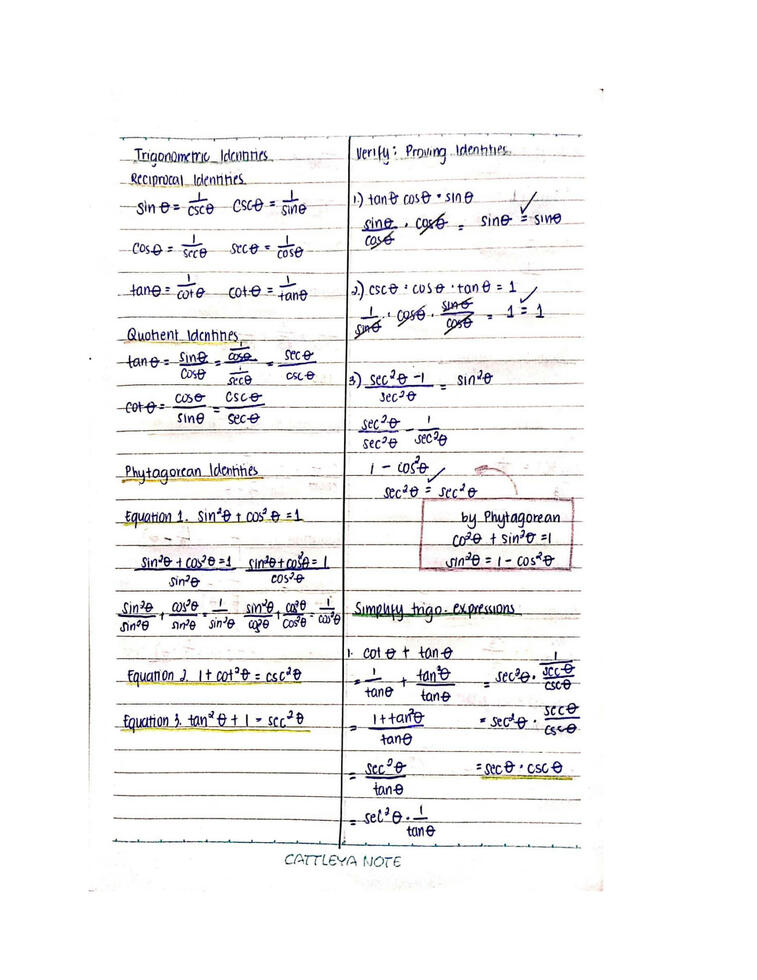 Trigonometric Identities
Reciprocal Identities
sin θ = 1/cscθ   cscθ = 1/sinθ
cosθ = 1/secθ   secθ = 1/cosθ
tanθ = 1/cotθ   cotθ = 1/tanθ
Quotient Identities
tanθ = sinθ/cosθ = (1/cosθ)/(1/secθ) = secθ/cscθ
cotθ = cosθ/sinθ = cscθ/secθ
Phytagorean Identities
Equation 1. sin²θ + cos²θ = 1
(sin²θ + cos²θ = 1)/sin²θ   (sin²θ + cos²θ = 1)/cos²θ
sin²θ/sin²θ + cos²θ/sin²θ = 1/sin²θ   sin²θ/cos²θ + cos²θ/cos²θ = 1/cos²θ
Equation 2. 1 + cot²θ = csc²θ
Equation 3. tan²θ + 1 = sec²θ
Verify: Proving Identities
1.) tanθ cosθ • sinθ
sinθ/cosθ · cosθ = sinθ = sinθ ✓
2.) cscθ · cosθ · tanθ = 1
1/sinθ · cosθ · sinθ/cosθ = 1 = 1 ✓
3) (sec²θ - 1)/sec²θ = sin²θ
sec²θ/sec²θ - 1/sec²θ
1 - cos²θ
sec²θ = sec²θ ✓
by Phytagorean
co²θ + sin²θ = 1
sin²θ = 1 - cos²θ
Simplify trigo. expressions
1. cot θ + tan θ
= 1/tanθ + tan²θ/tanθ
= (1 + tan²θ)/tanθ
= sec²θ/tanθ
= sec²θ · 1/tanθ
= sec²θ · 1/(secθ/cscθ)
= sec²θ · secθ/cscθ
= secθ · cscθ
CATTLEYA NOTE